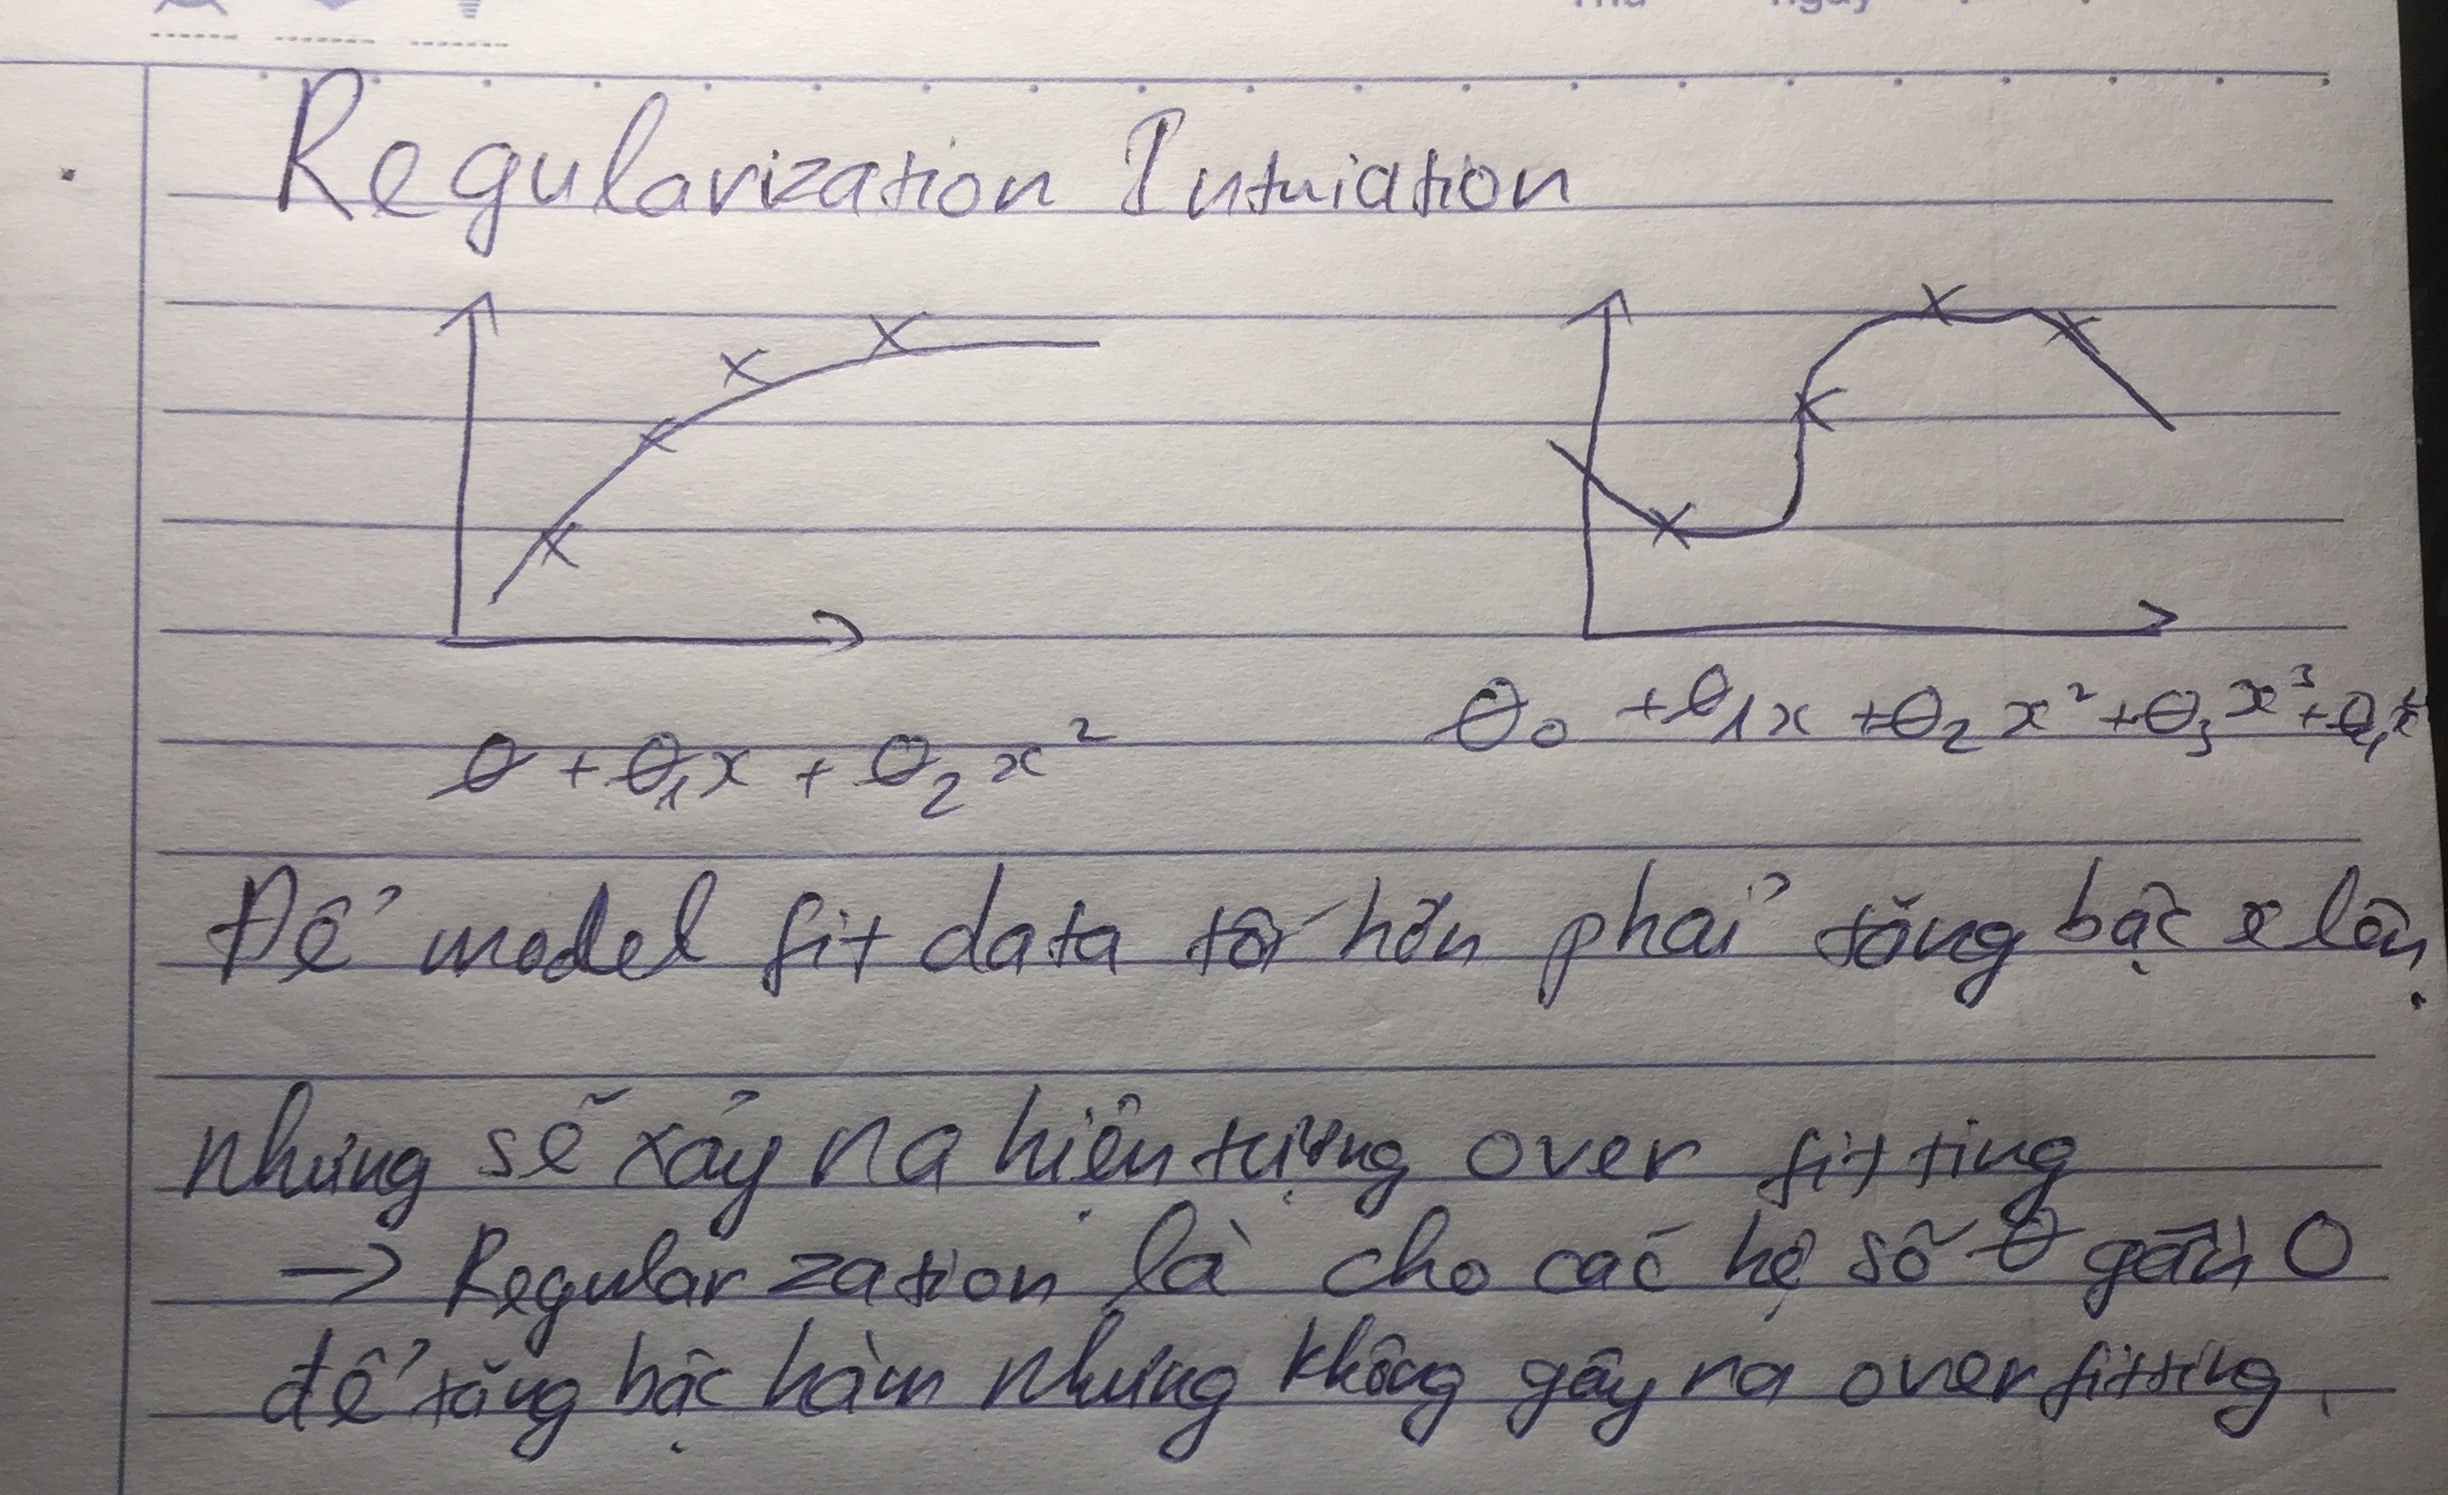 Thứ Ngày
Regularization Intuiation
θ + θ₁x + θ₂x²
θ₀ + θ₁x + θ₂x² + θ₃x³ + θ₄x⁴
Để model fit data tốt hơn phải tăng bậc x lên.
nhưng sẽ xảy ra hiện tượng over fitting
→ Regular zation là cho các hệ số θ gần 0
để tăng bậc hàm nhưng không gây ra overfitting.